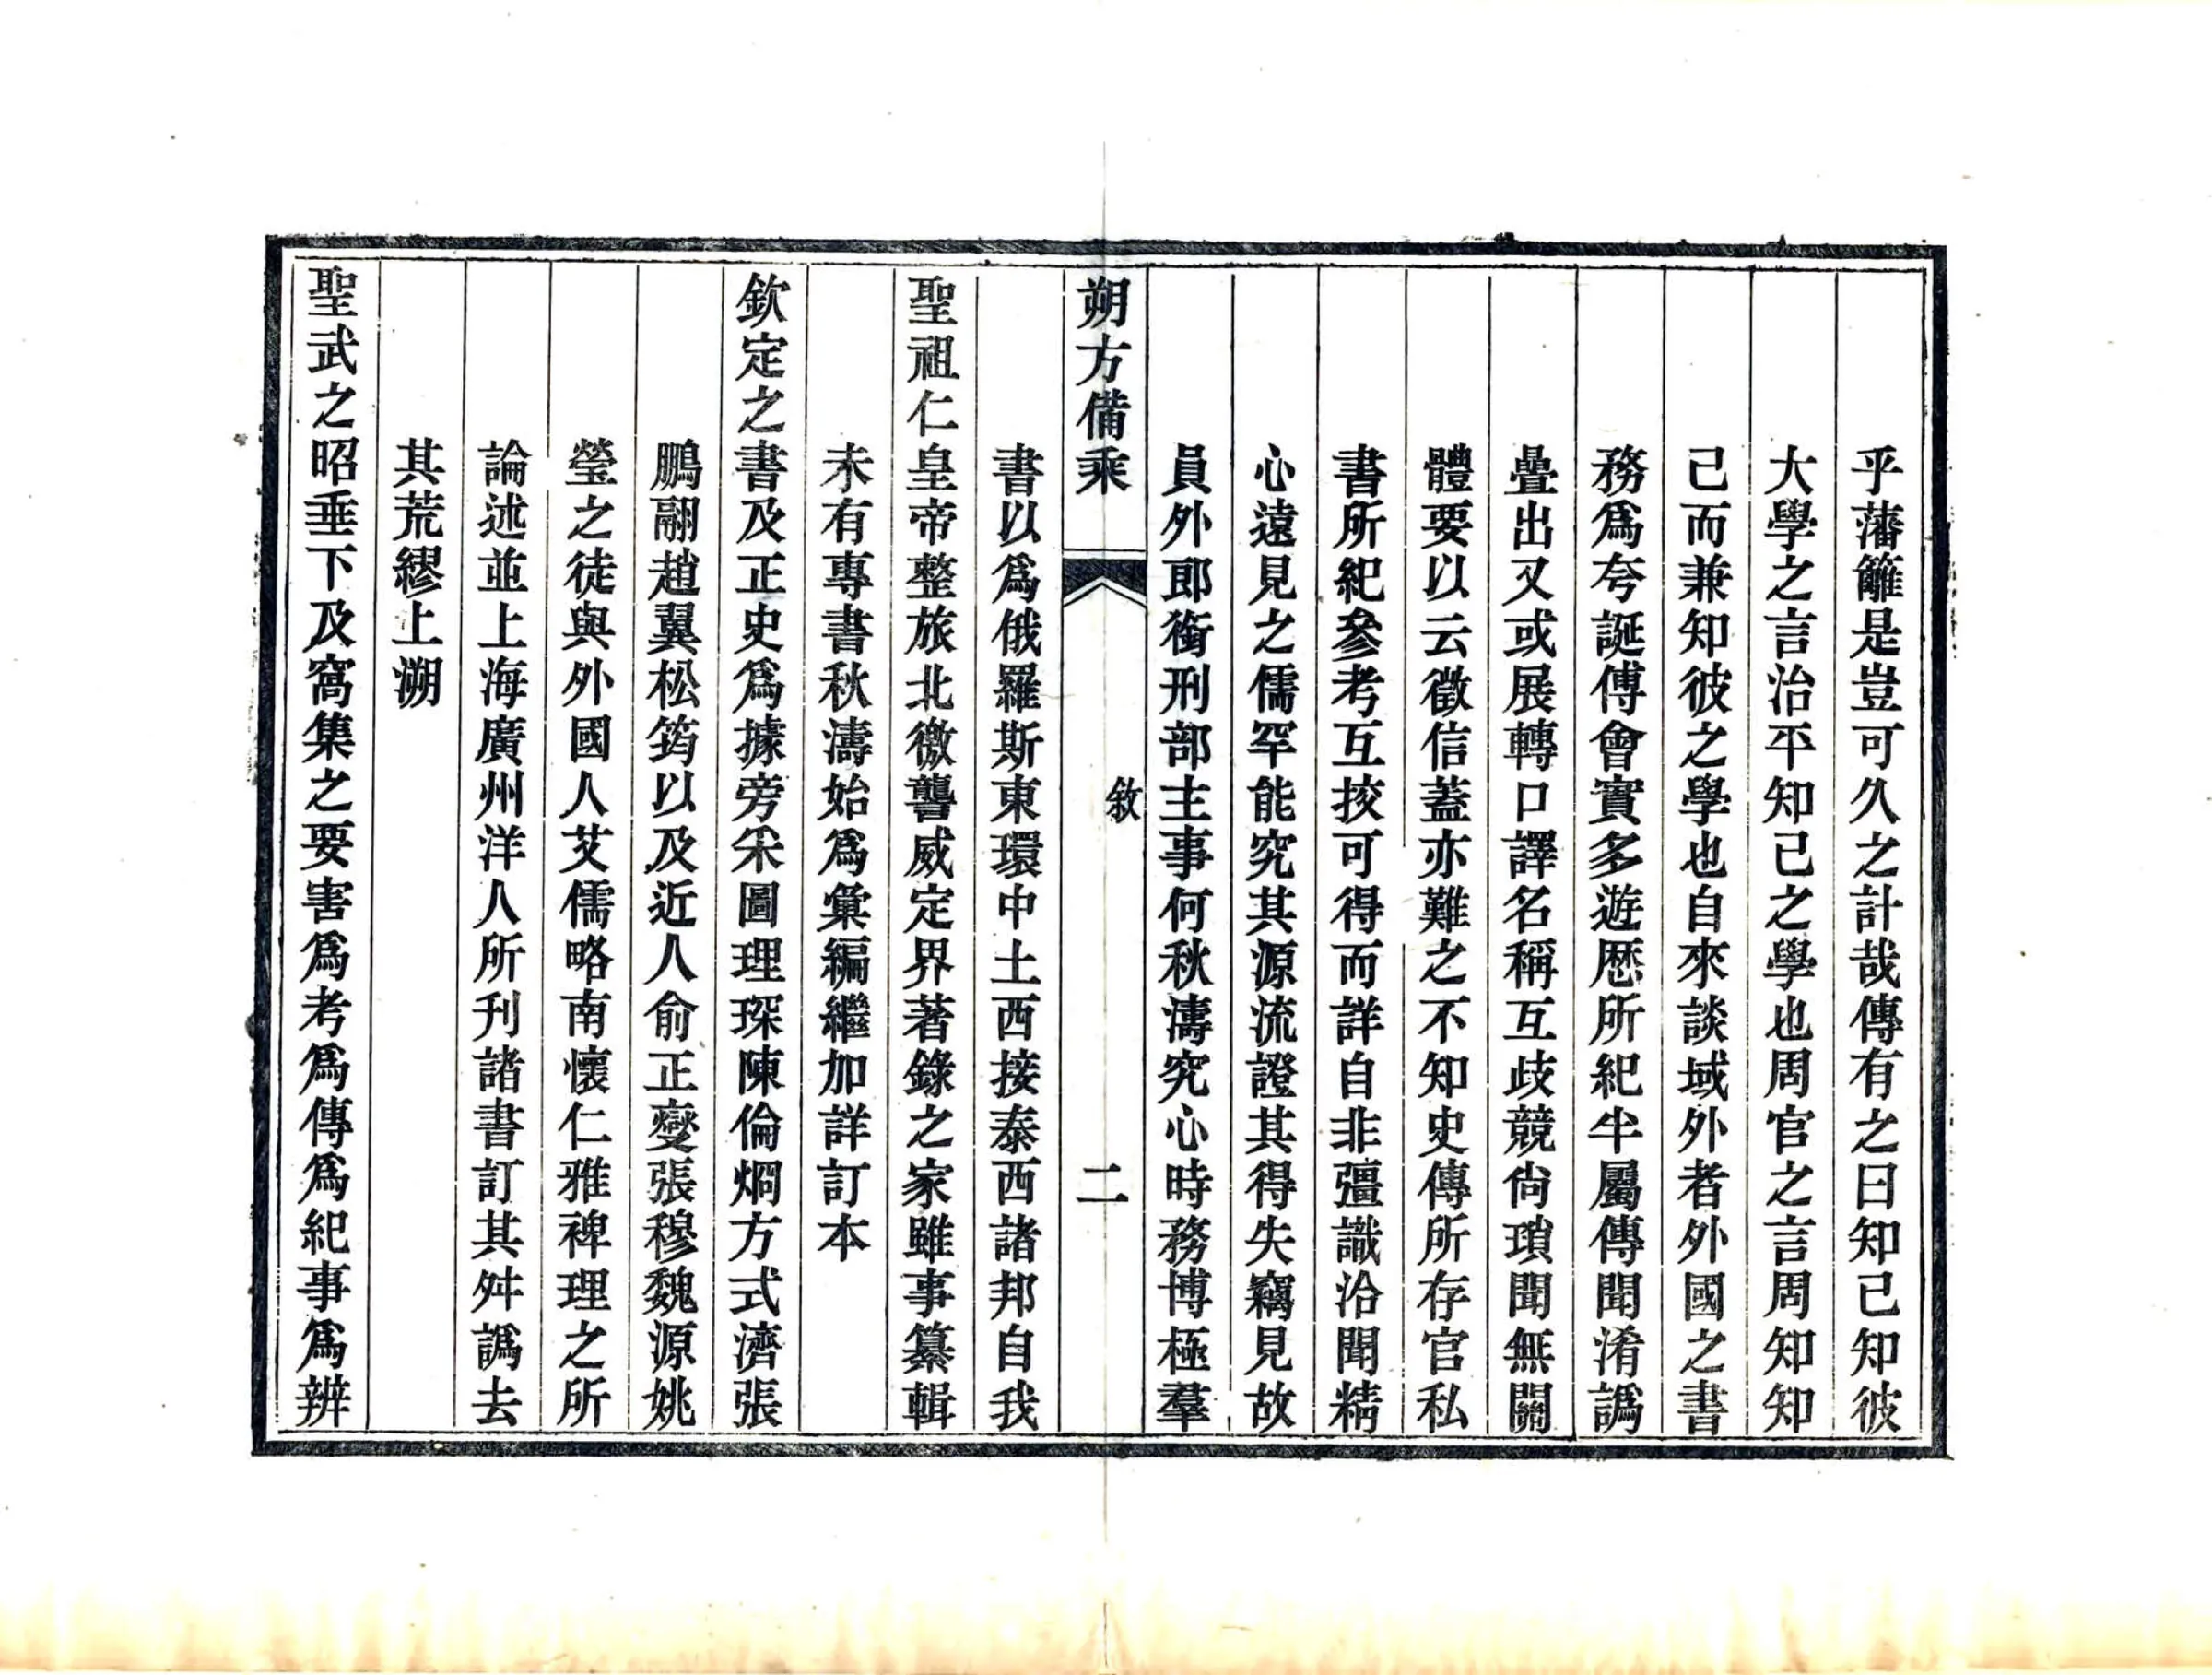 乎藩籬是豈可久之計哉傳有之曰知己知彼
大學之言治平知己之學也周官之言周知知
己而兼知彼之學也自來談域外者外國之書
務爲夸誕傅會實多遊歷所紀半屬傳聞淆譌
疊出又或展轉口譯名稱互歧競尙瑣聞無關
體要以云徵信蓋亦難之不知史傳所存官私
書所紀參考互挍可得而詳自非彊識洽聞精
心遠見之儒罕能究其源流證其得失竊見故
員外郎銜刑部主事何秋濤究心時務博極羣
朔方備乘
敘
二
書以爲俄羅斯東環中土西接泰西諸邦自我
聖祖仁皇帝整旅北徼讋威定界著錄之家雖事纂輯
未有專書秋濤始爲彙編繼加詳訂本
欽定之書及正史爲據旁采圖理琛陳倫烱方式濟張
鵬翮趙翼松筠以及近人俞正燮張穆魏源姚
瑩之徒與外國人艾儒略南懷仁雅裨理之所
論述並上海廣州洋人所刊諸書訂其舛譌去
其荒繆上溯
聖武之昭垂下及窩集之要害爲考爲傳爲紀事爲辨